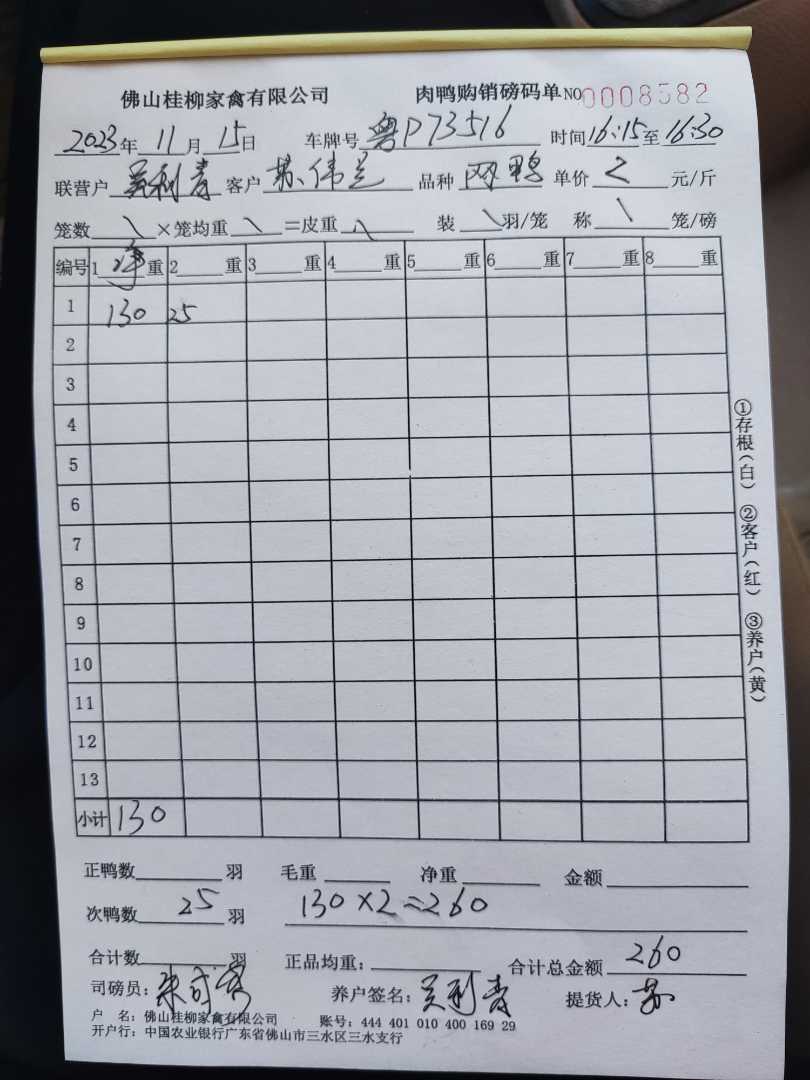 佛山桂柳家禽有限公司 肉鸭购销磅码单 NO 0008582
2023年 11月 15日 车牌号 粤P73516 时间 16:15 至 16:30
联营户 吴利青 客户 苏伟兰 品种 网鸭 单价 2 元/斤
笼数 \ ×笼均重 \ =皮重 \ 装 \ 羽/笼 称 \ 笼/磅
编号 1 净 重 2 重 3 重 4 重 5 重 6 重 7 重 8 重
1 130 25
2
3
4
5
6
7
8
9
10
11
12
13
小计 130
①存根(白) ②客户(红) ③养户(黄)
正鸭数 羽 毛重 净重 金额
次鸭数 25 羽 130×2=260
合计数 羽 正品均重: 合计总金额 260
司磅员: 养户签名: 吴利青 提货人: 苏
户 名: 佛山桂柳家禽有限公司 账号: 444 401 010 400 169 29
开户行: 中国农业银行广东省佛山市三水区三水支行